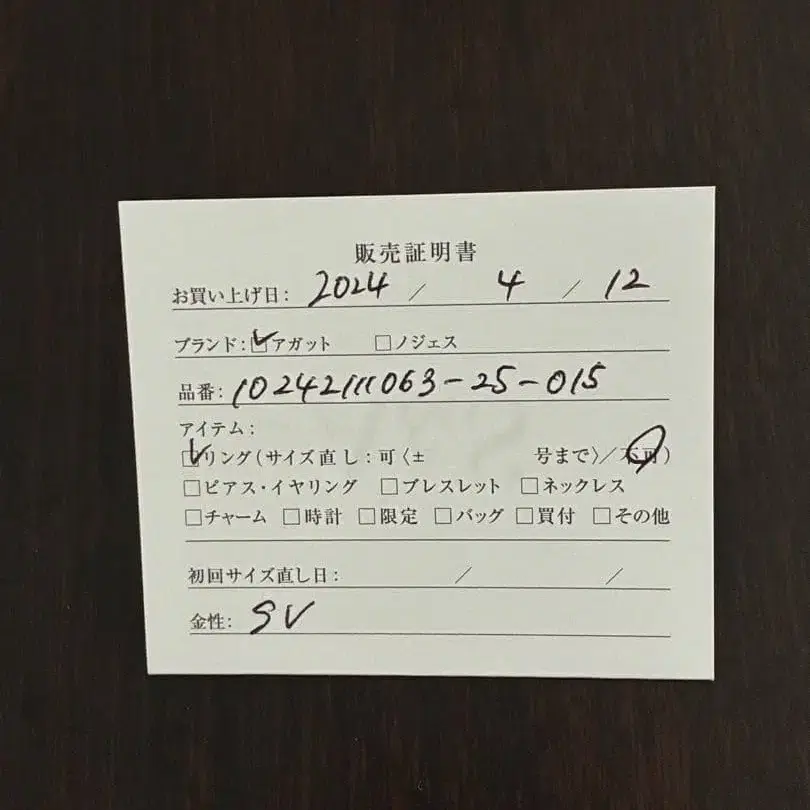 販売証明書
お買い上げ日: 2024 / 4 / 12
ブランド: ☑アガット □ノジェス
品番: 10242111063-25-015
アイテム:
☑リング(サイズ直し:可〈± 号まで〉/不可)
□ピアス・イヤリング □ブレスレット □ネックレス
□チャーム □時計 □限定 □バッグ □買付 □その他
初回サイズ直し日: / /
金性: SV